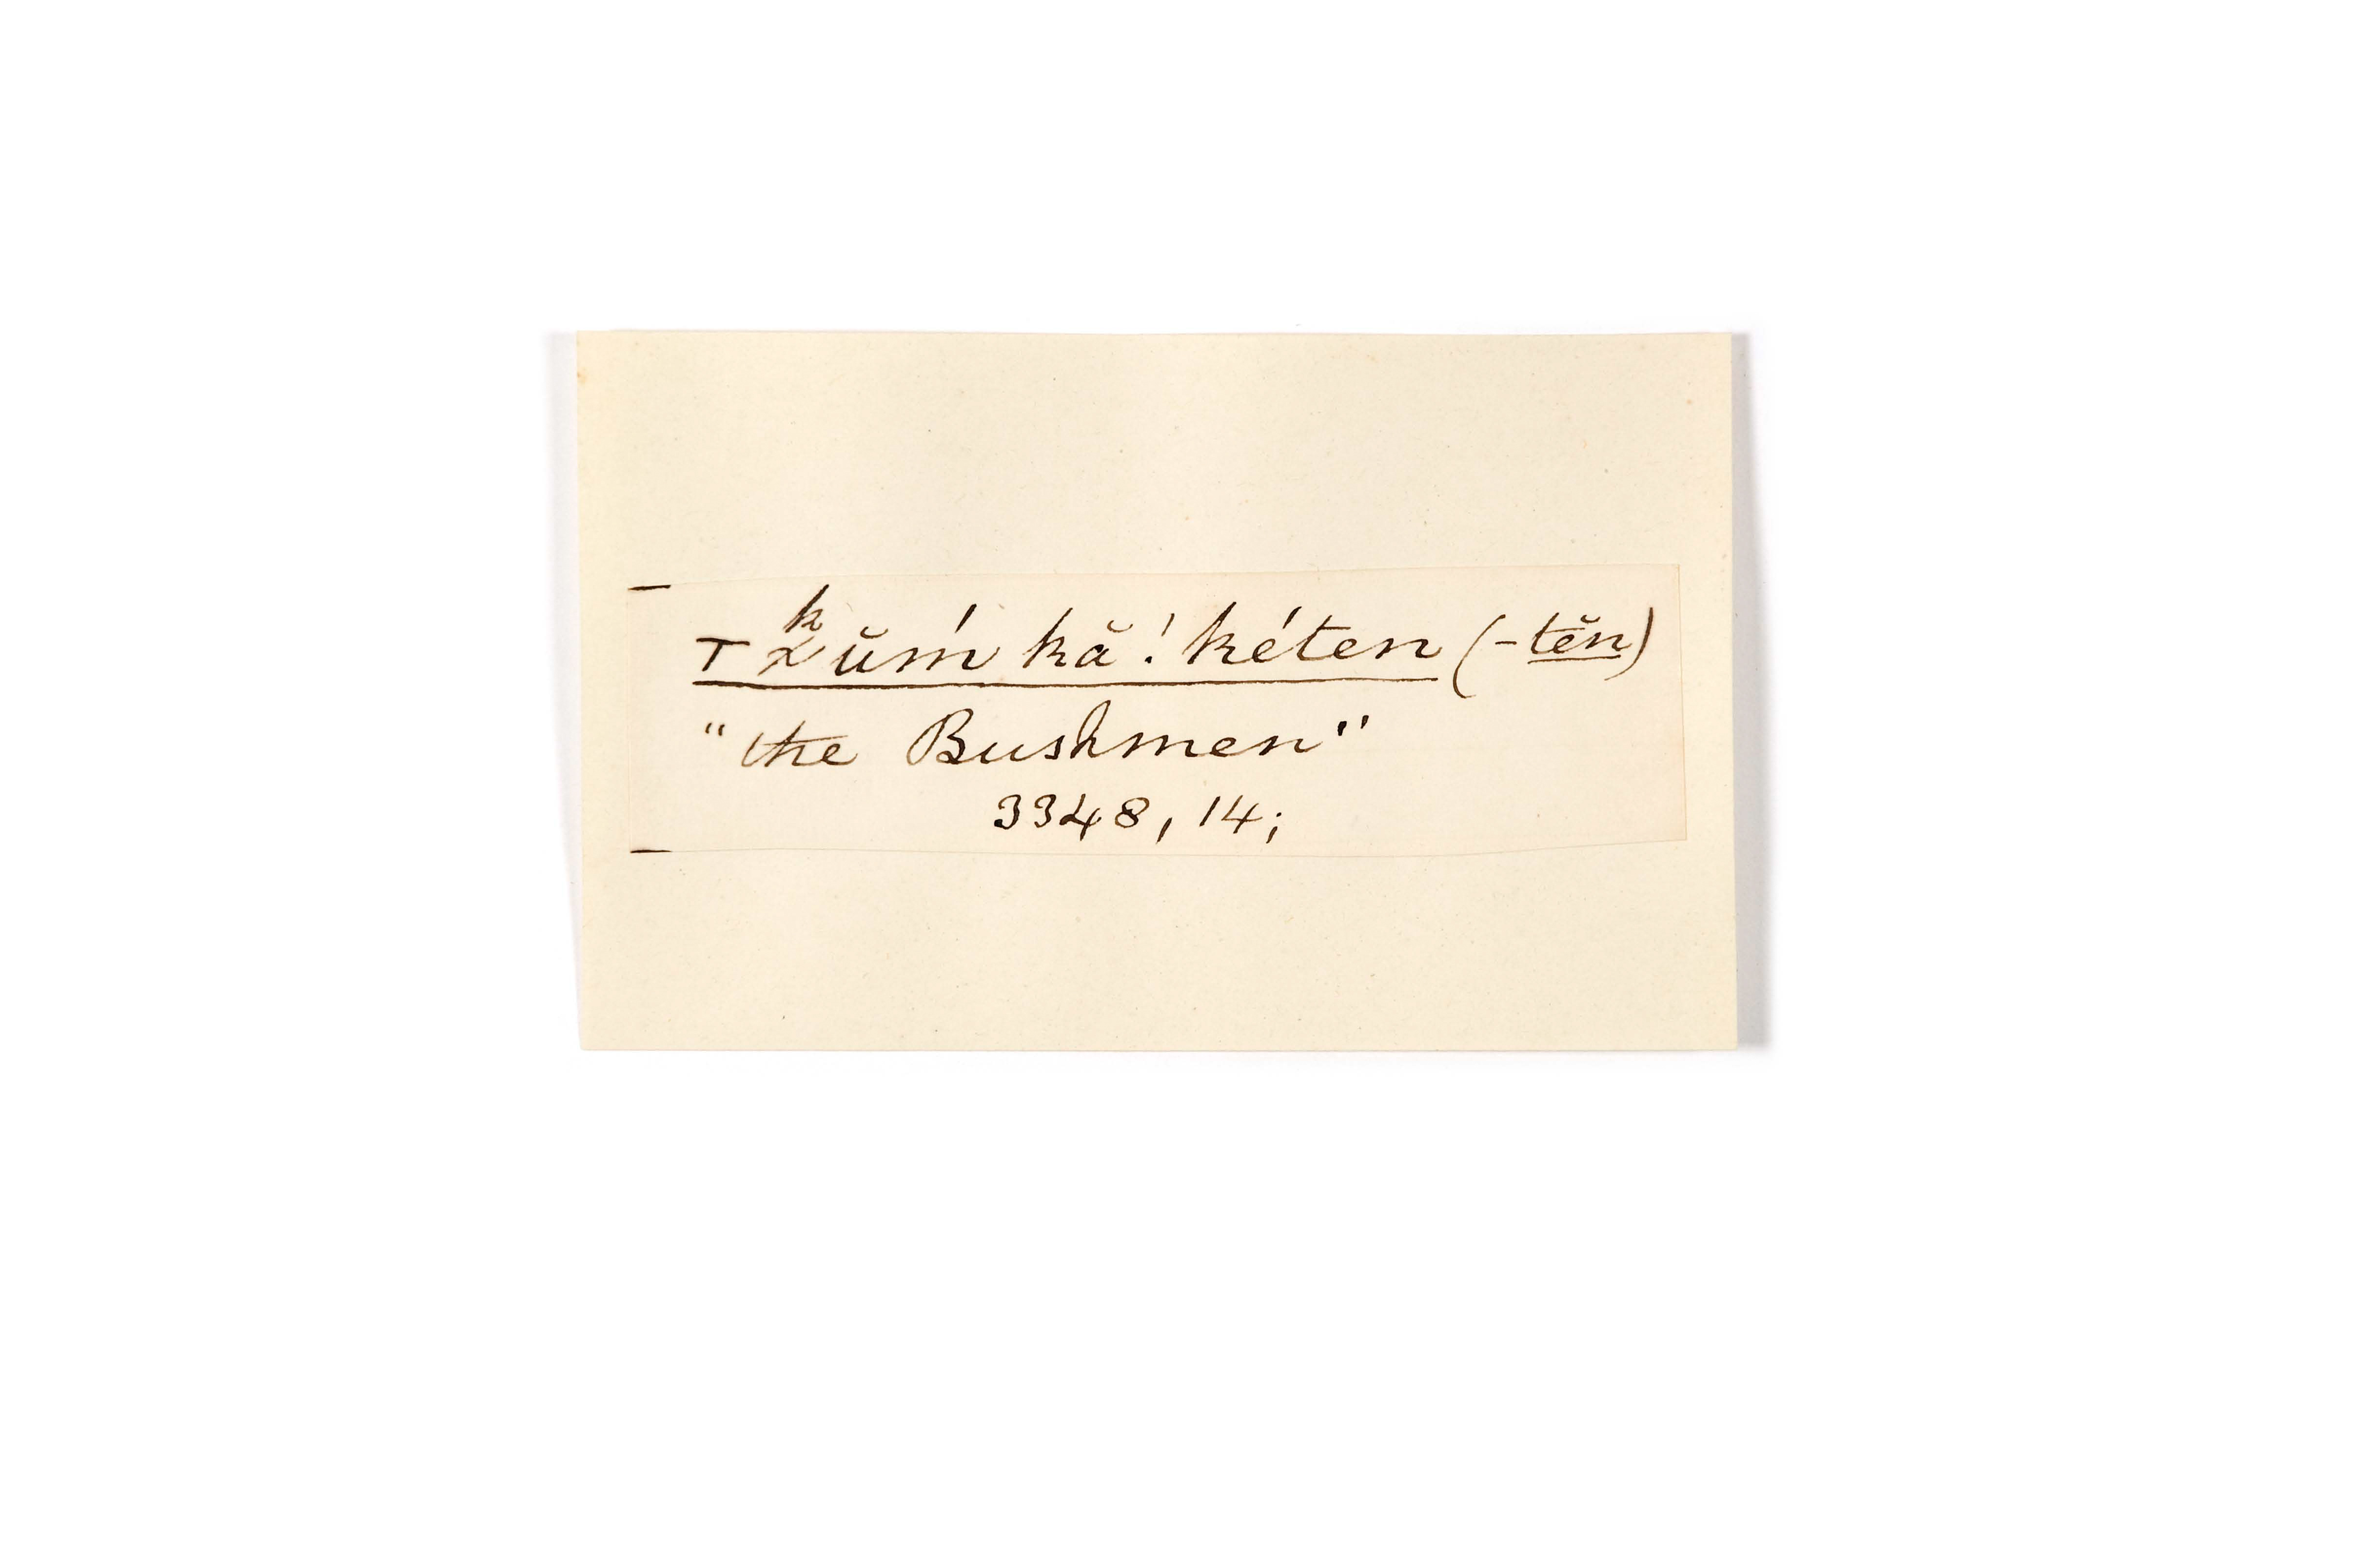 ⊤ ᵏχŭḿ kă !kéten (-tĕn)
"the Bushmen"
3348, 14;